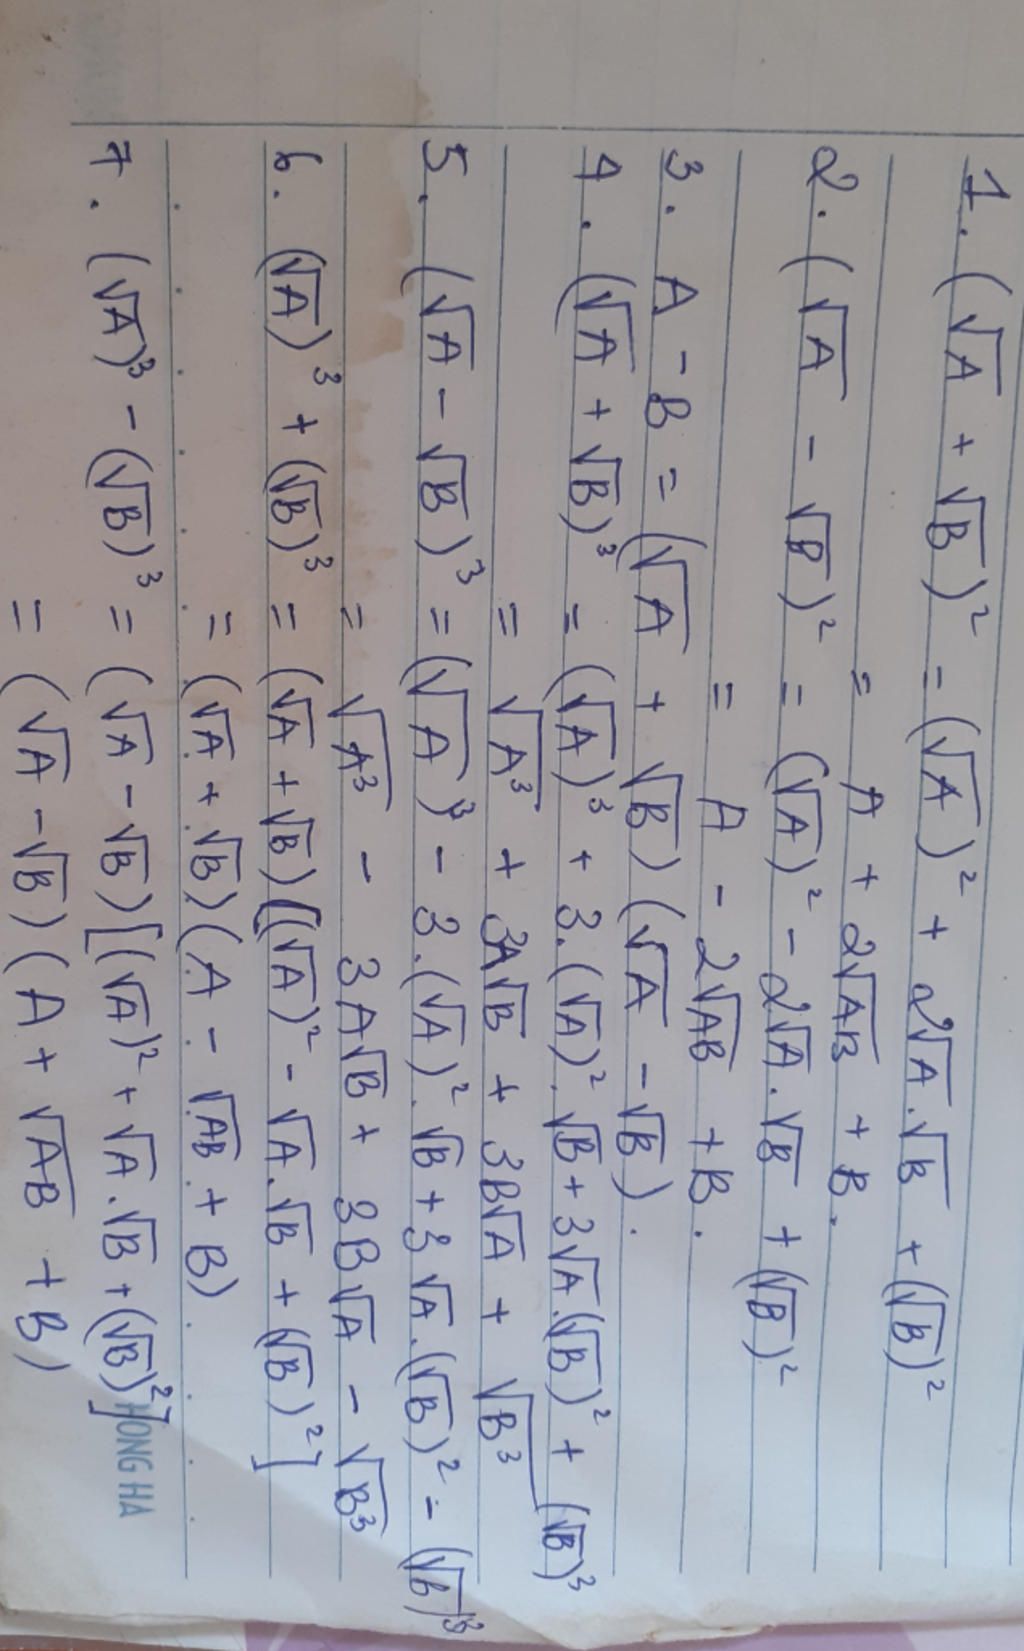 1. (√A + √B)² = (√A)² + 2√A.√B + (√B)²
= A + 2√AB + B.
2. (√A - √B)² = (√A)² - 2√A.√B + (√B)²
= A - 2√AB + B.
3. A - B = (√A + √B)(√A - √B).
4. (√A + √B)³ = (√A)³ + 3.(√A)².√B + 3√A.(√B)² + (√B)³
= √A³ + 3A√B + 3B√A + √B³
5. (√A - √B)³ = (√A)³ - 3.(√A)².√B + 3√A.(√B)² - (√b)³
= √A³ - 3A√B + 3B√A - √B³
6. (√A)³ + (√B)³ = (√A + √B)[(√A)² - √A.√B + (√B)²]
= (√A + √B)(A - √AB + B)
7. (√A)³ - (√B)³ = (√A - √B)[(√A)² + √A.√B + (√B)²]
= (√A - √B)(A + √AB + B)
HONG HA